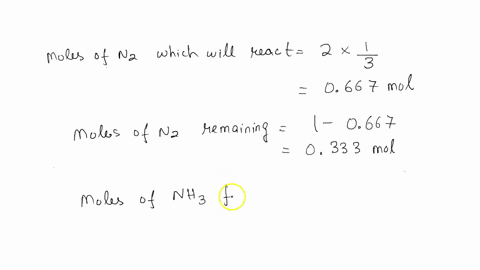 Moles of N2 which will react = 2 × 1/3
= 0.667 mol
Moles of N2 remaining = 1 - 0.667
= 0.333 mol
Moles of NH3 f